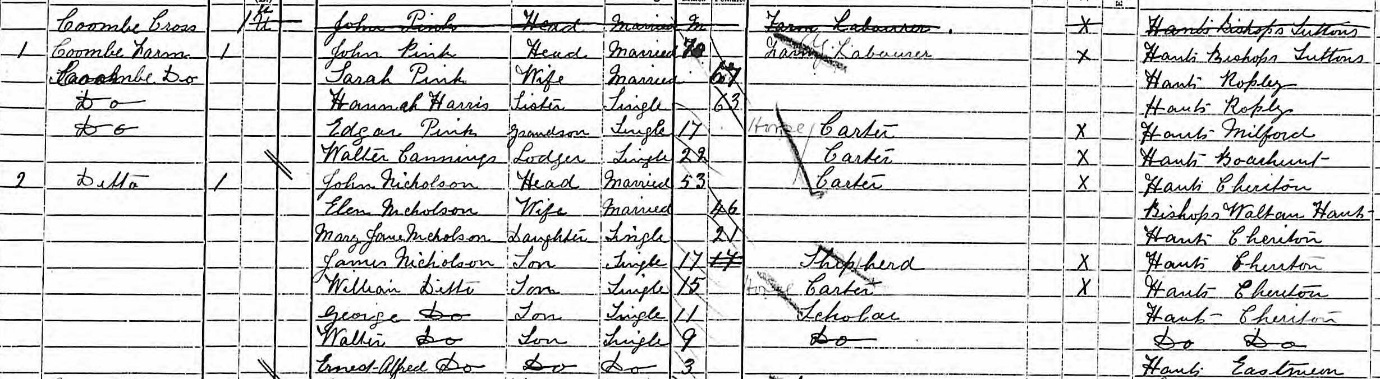 Coombe Cross 1 John Pink Head Married M Farm Labourer. X Hants Bishops Suttons
1 Coombe Farm 1 John Pink Head Married 70 Farm Labourer X Hants Bishops Suttons
Coombe Do Sarah Pink Wife Married 67 Hants Ropley
Do Hannah Harris Sister Single 63 Hants Ropley
Do Edgar Pink Grandson Single 17 Horse Carter X Hants Milford
Walter Cannings Lodger Single 22 Carter X Hants Boarhunt
2 Ditto 1 John Nicholson Head Married 53 Carter X Hants Cheriton
Elen Nicholson Wife Married 46 Bishops Waltam Hants
Mary Jane Nicholson Daughter Single 21 Hants Cheriton
James Nicholson Son Single 17 17 Shepherd X Hants Cheriton
William Ditto Son Single 15 Horse Carter X Hants Cheriton
George Do Son Single 11 Scholar Hants Cheriton
Walter Do Son Single 9 Do Do Do
Ernest Alfred Do Do Do 3 Hants Eastmeon